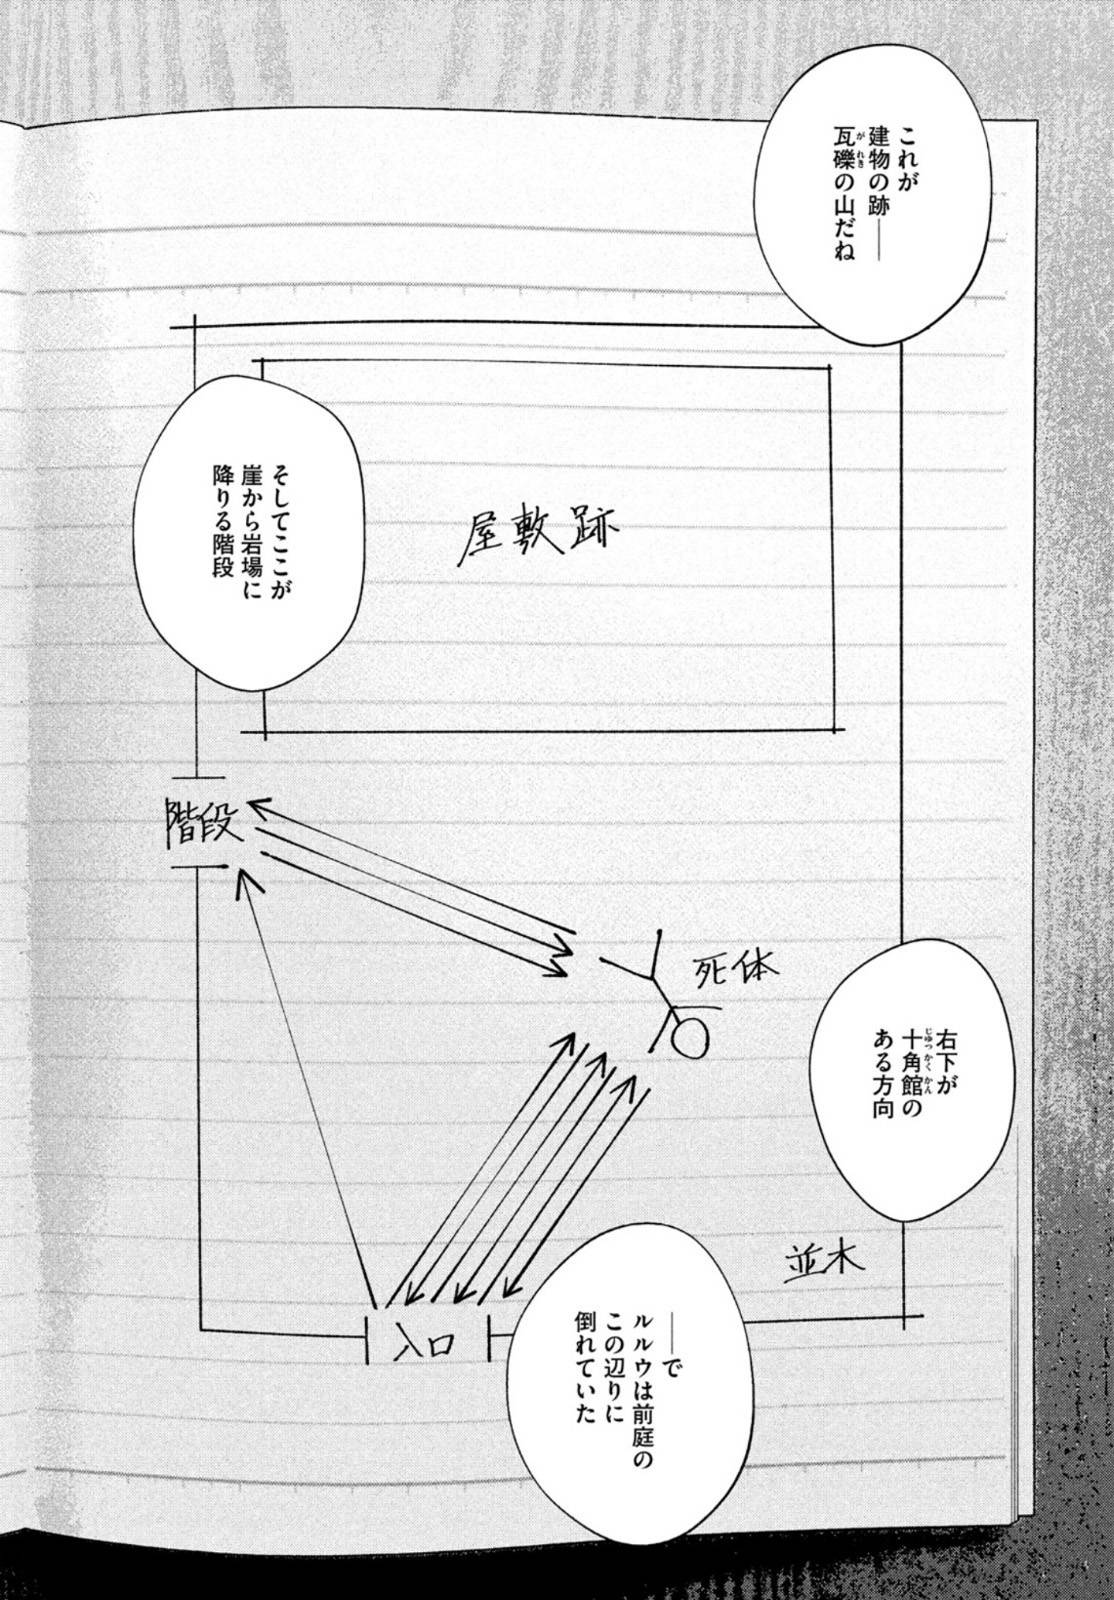 これが
建物の跡――
瓦礫の山だね
がれき
そしてここが
崖から岩場に
降りる階段
屋敷跡
階段
死体
右下が
十角館の
じゅっかくかん
ある方向
並木
――で
ルルウは前庭の
この辺りに
倒れていた
入口